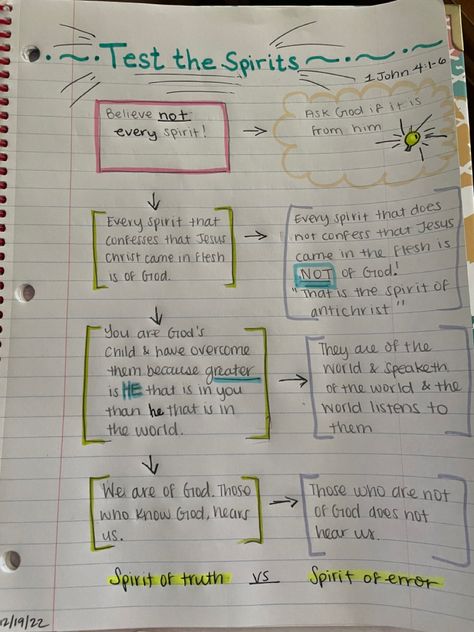 Test the Spirits
1 John 4:1-6
Believe not
every spirit!
Ask God if it is
from him
Every spirit that
confesses that Jesus
Christ came in flesh
is of God.
Every spirit that does
not confess that Jesus
came in the flesh is
NOT of God!
"That is the spirit of
antichrist"
You are God's
child & have overcome
them because greater
is HE that is in you
than he that is in
the world.
They are of the
world & speaketh
of the world & the
world listens to
them
We are of God. Those
who know God, hears
us.
Those who are not
of God does not
hear us.
Spirit of truth vs Spirit of error
12/19/22